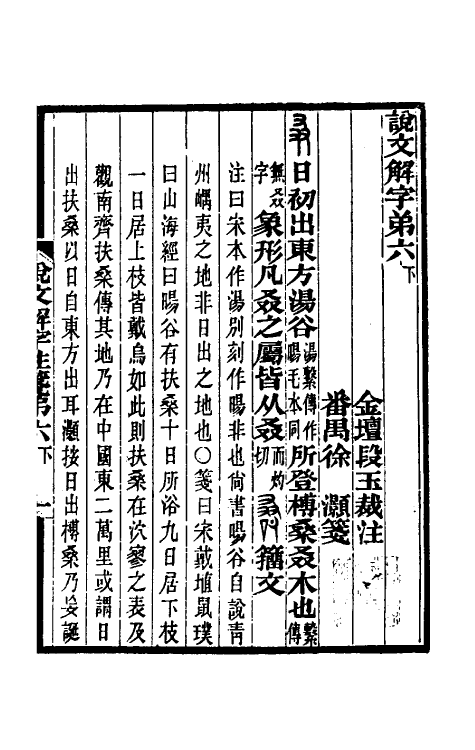 說文解字弟六下
金壇段玉裁注
番禺徐　灝箋
日初出東方湯谷湯繫傳作暘毛本同所登榑桑叒木也繫傳
無叒字象形凡叒之屬皆从叒而灼切籒文
注曰宋本作湯別刻作暘非也尙書暘谷自說靑
州嵎夷之地非日出之地也○箋曰宋戴埴鼠璞
曰山海經曰暘谷有扶桑十日所浴九日居下枝
一日居上枝皆戴烏如此則扶桑在泬寥之表及
觀南齊扶桑傳其地乃在中國東二萬里或謂日
出扶桑以日自東方出耳灝按日出榑桑乃妄誕
說文解字注箋第六下　一